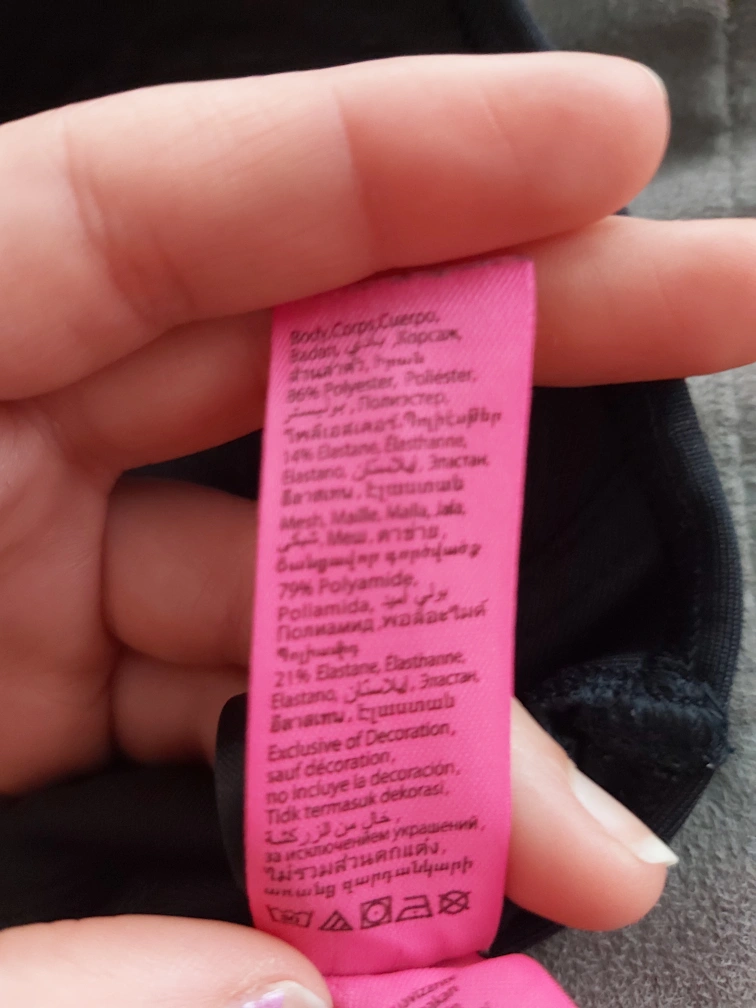 Body, Corps, Cuerpo,
Badan, بادي, Корсаж,
ส่วนลำตัว, Իրան
86% Polyester, Poliéster,
بوليستر, Полиэстер,
โพลีเอสเตอร์, Պոլիէսթեր
14% Elastane, Élasthanne,
Elastano, إيلاستان, Эластан,
อีลาสเทน, Էլաստան
Mesh, Maille, Malla, Jala,
شبكي, Меш, ตาข่าย,
Ցանցավոր գործվածք
79% Polyamide,
Poliamida, بولي أميد
Полиамид, พอลิอะไมด์
Պոլիամիդ
21% Elastane, Élasthanne,
Elastano, إيلاستان, Эластан,
อีลาสเทน, Էլաստան
Exclusive of Decoration,
sauf décoration,
no incluye la decoración,
Tidk termasuk dekorasi,
خال من الزركشة,
за исключением украшений,
ไม่รวมส่วนตกแต่ง,
առանց զարդանկարի